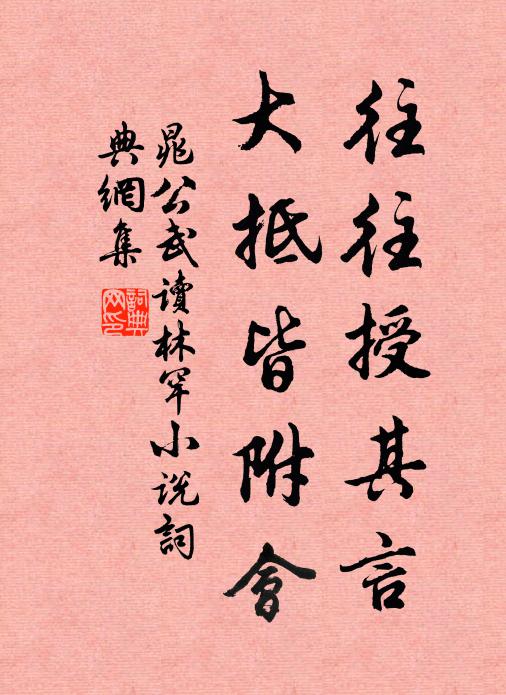 往往授其言
大抵皆附會
晁公武讀林罕小说詞
典網集
詞典网印